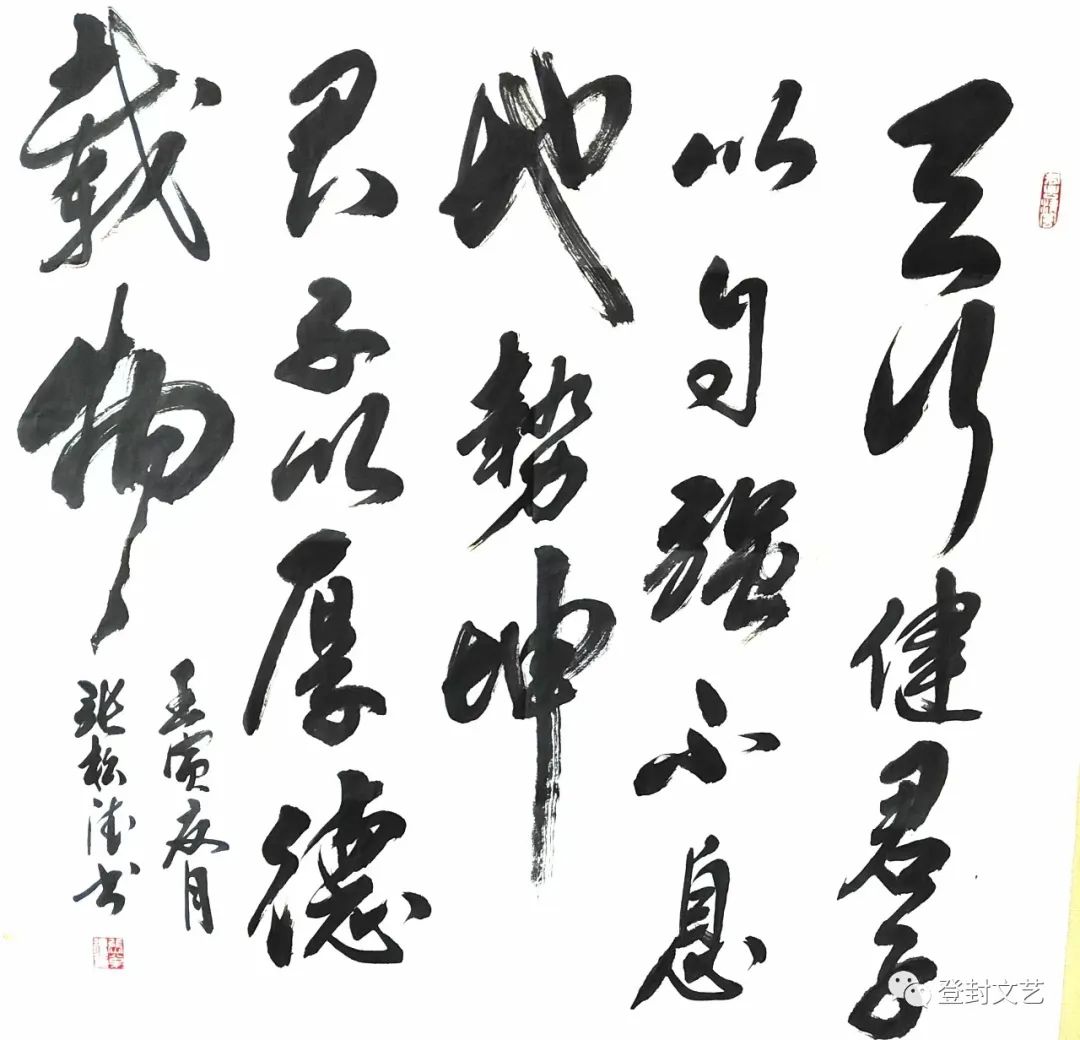 天行健君子
以自强不息
地势坤
君子以厚德
载物
壬寅夏月
张松涛书
登封文艺